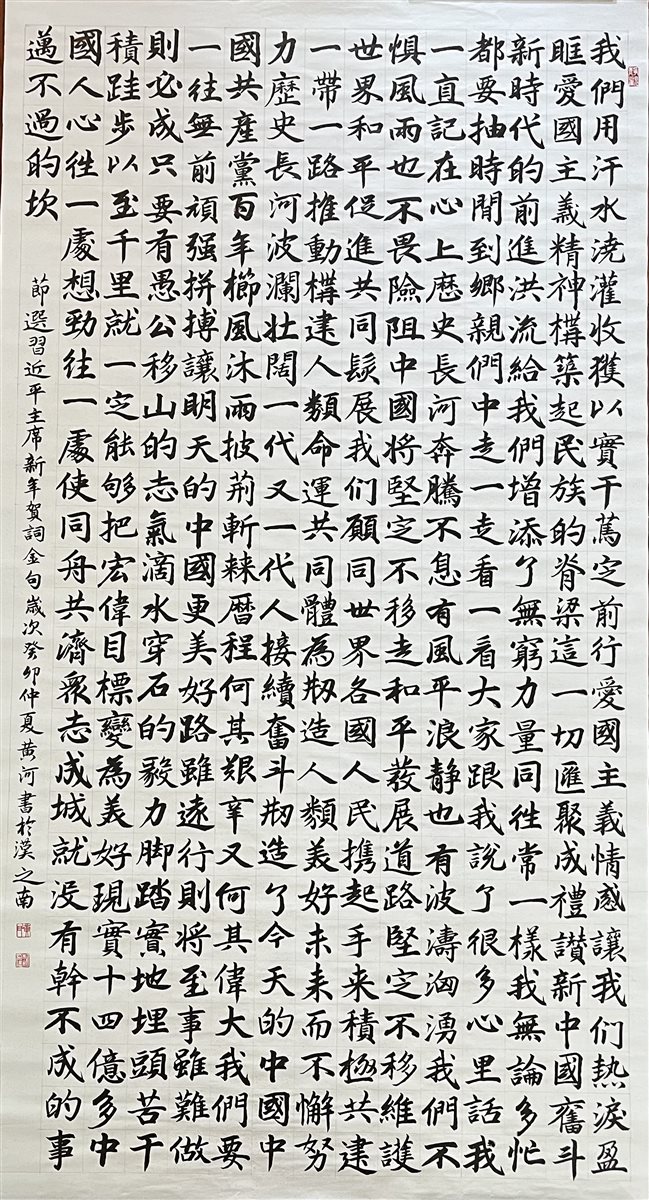 我們用汗水浇灌收獲以實干篤定前行愛國主義情感讓我们熱淚盈
眶愛國主義精神構築起民族的脊梁這一切匯聚成禮讚新中國奮斗
新時代的前進洪流給我們增添了無窮力量同往常一樣我無論多忙
都要抽時間到鄉親們中走一走看一看大家跟我說了很多心里話我
一直記在心上歷史長河奔騰不息有風平浪静也有波濤汹湧我們不
惧風雨也不畏險阻中國将堅定不移走和平發展道路堅定不移維護
世界和平促進共同發展我们願同世界各國人民携起手来積極共建
一帶一路推動構建人類命運共同體為刱造人類美好未来而不懈努
力歷史長河波瀾壯闊一代又一代人接續奮斗刱造了今天的中國中
國共產黨百年櫛風沐雨披荆斬棘曆程何其艱辛又何其偉大我們要
一往無前頑强拼搏讓明天的中國更美好路雖遠行則将至事雖難做
則必成只要有愚公移山的志氣滴水穿石的毅力脚踏實地埋頭苦干
積跬步以至千里就一定能够把宏偉目標變為美好現實十四億多中
國人心往一處想勁往一處使同舟共濟衆志成城就没有幹不成的事
邁不過的坎
節選習近平主席新年賀詞金句歲次癸卯仲夏黄河書於漠之南